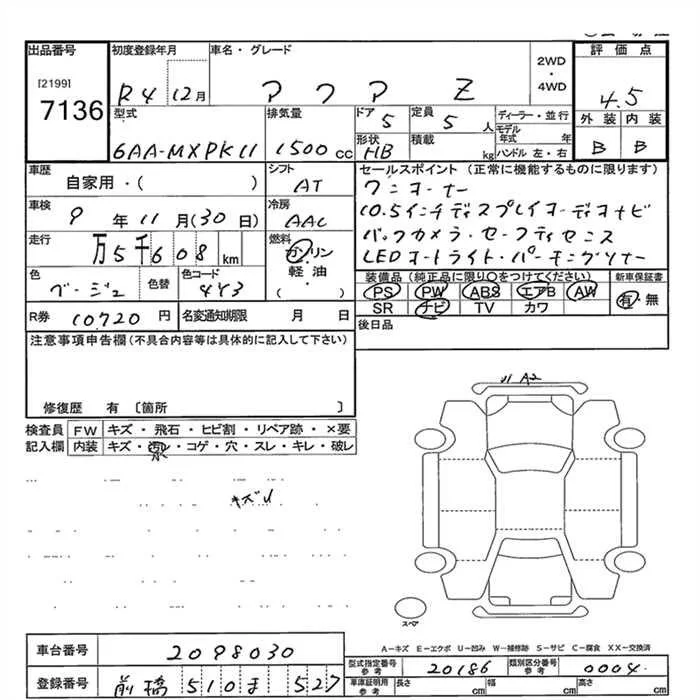 出品番号
[2199]
7136
初度登録年月
R4 12月
車名・グレード
アクア Z
2WD
・
4WD
評価点
4.5
外装 内装
B B
型式
6AA-MXPK11
排気量
1500 cc
ドア
5
定員
5 人
形状
HB
積載
kg
ディーラー・並行
モデル年式 年
ハンドル 左・右
車歴
自家用・( )
シフト
AT
車検
9 年 11 月 (30 日)
冷房
AAC
走行
万5千608 km
燃料
ガソリン
軽油
( ・ )
色
ベージュ
色替
色コード
4Y3
R券
10720 円
名変通知期限 月 日
セールスポイント (正常に機能するものに限ります)
ワンオーナー
10.5インチディスプレイオーディオナビ
バックカメラ・セーフティセンス
LEDオートライト・パーキングソナー
装備品 (純正品に限り○をつけてください)
PS PW ABS エアB AW
SR ナビ TV カワ
新車保証書
有・無
後日品
注意事項申告欄(不具合内容等は具体的に記入して下さい)
修復歴 有 〔箇所 〕
検査員記入欄
FW キズ・飛石・ヒビ割・リペア跡・×要
内装 キズ・・コゲ・穴・スレ・キレ・破レ
キズU
A2
スペア
A-キズ E-エクボ U-凹み W-補修跡 S-サビ C-腐食 XX-交換済
車台番号
2098030
登録番号
前橋 510 ま 527
型式指定番号
参考
20186
類別区分番号
参考
0004
車庫証明用
参考
長さ cm
幅 cm
高さ cm